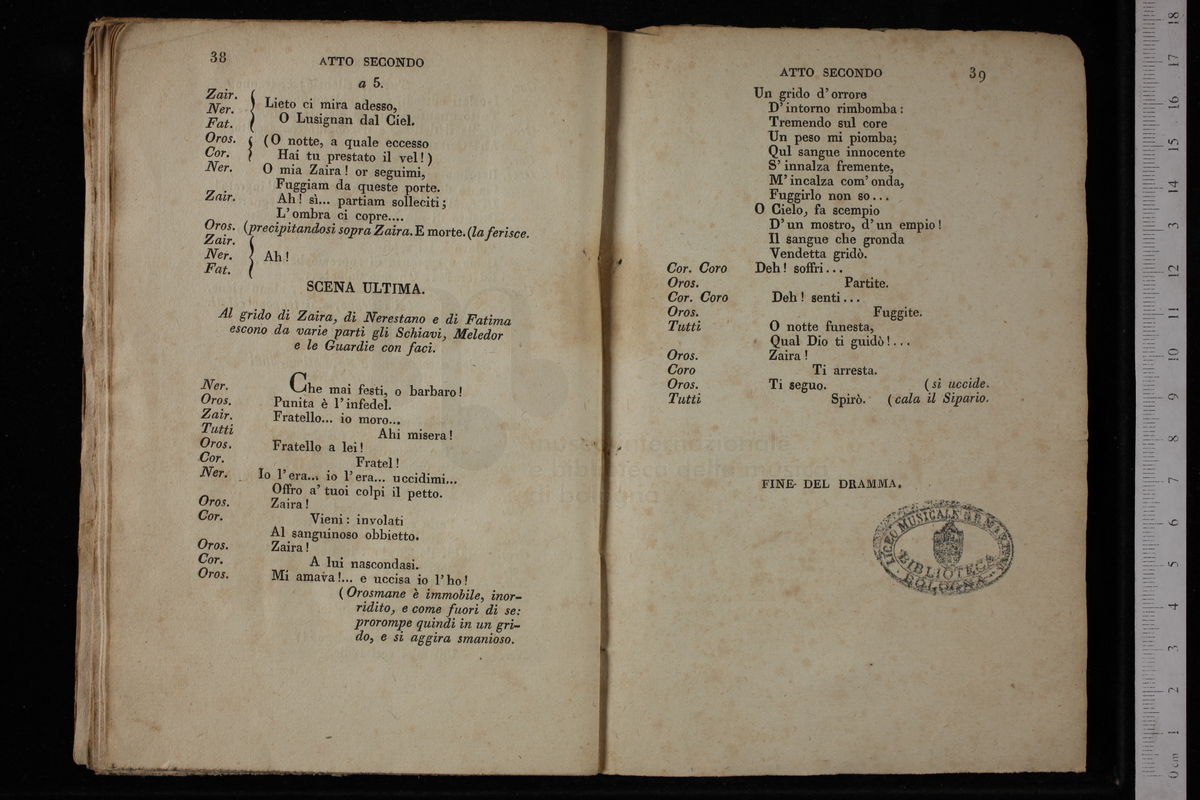 38
ATTO SECONDO
a 5.
Zair.
Ner. Lieto ci mira adesso,
Fat. O Lusignan dal Ciel.
Oros. (O notte, a quale eccesso
Cor. Hai tu prestato il vel!)
Ner. O mia Zaira! or seguimi,
Fuggiam da queste porte.
Zair. Ah! sì... partiam solleciti;
L'ombra ci copre....
Oros. (precipitandosi sopra Zaira. E morte. (la ferisce.
Zair.
Ner. Ah!
Fat.
SCENA ULTIMA.
Al grido di Zaira, di Nerestano e di Fatima
escono da varie parti gli Schiavi, Meledor
e le Guardie con faci.
Ner. Che mai festi, o barbaro!
Oros. Punita è l'infedel.
Zair. Fratello... io moro...
Tutti Ahi misera!
Oros. Fratello a lei!
Cor. Fratel!
Ner. Io l'era... io l'era... uccidimi...
Offro a' tuoi colpi il petto.
Oros. Zaira!
Cor. Vieni: involati
Al sanguinoso obbietto.
Oros. Zaira!
Cor. A lui nascondasi.
Oros. Mi amava!... e uccisa io l'ho!
(Orosmane è immobile, inor-
ridito, e come fuori di se:
prorompe quindi in un gri-
do, e si aggira smanioso.
ATTO SECONDO 39
Un grido d'orrore
D'intorno rimbomba:
Tremendo sul core
Un peso mi piomba;
Qul sangue innocente
S'innalza fremente,
M'incalza com'onda,
Fuggirlo non so...
O Cielo, fa scempio
D'un mostro, d'un empio!
Il sangue che gronda
Vendetta gridò.
Cor. Coro Deh! soffri...
Oros. Partite.
Cor. Coro Deh! senti...
Oros. Fuggite.
Tutti O notte funesta,
Qual Dio ti guidò!...
Oros. Zaira!
Coro Ti arresta.
Oros. Ti seguo. (si uccide.
Tutti Spirò. (cala il Sipario.
FINE DEL DRAMMA.
LICEO MUSICALE G.B. MARTINI
BIBLIOTECA
BOLOGNA
museo internazionale
biblioteca della musica
di bologna
0 cm 1 2 3 4 5 6 7 8 9 10 11 12 3 14 15 16 17 18